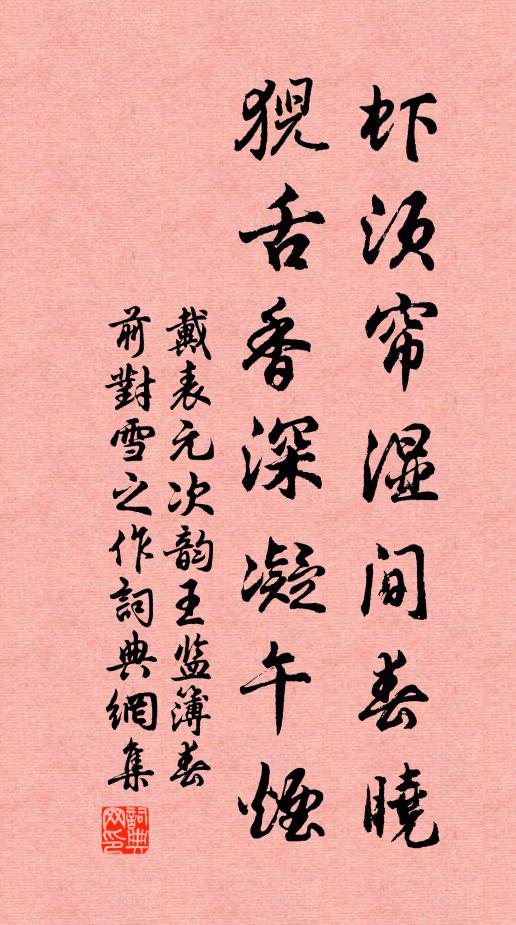 虾须帘湿间春晓
猊舌香深凝午煙
戴表元次韵王监簿春
前對雪之作詞典網集
詞典
网印